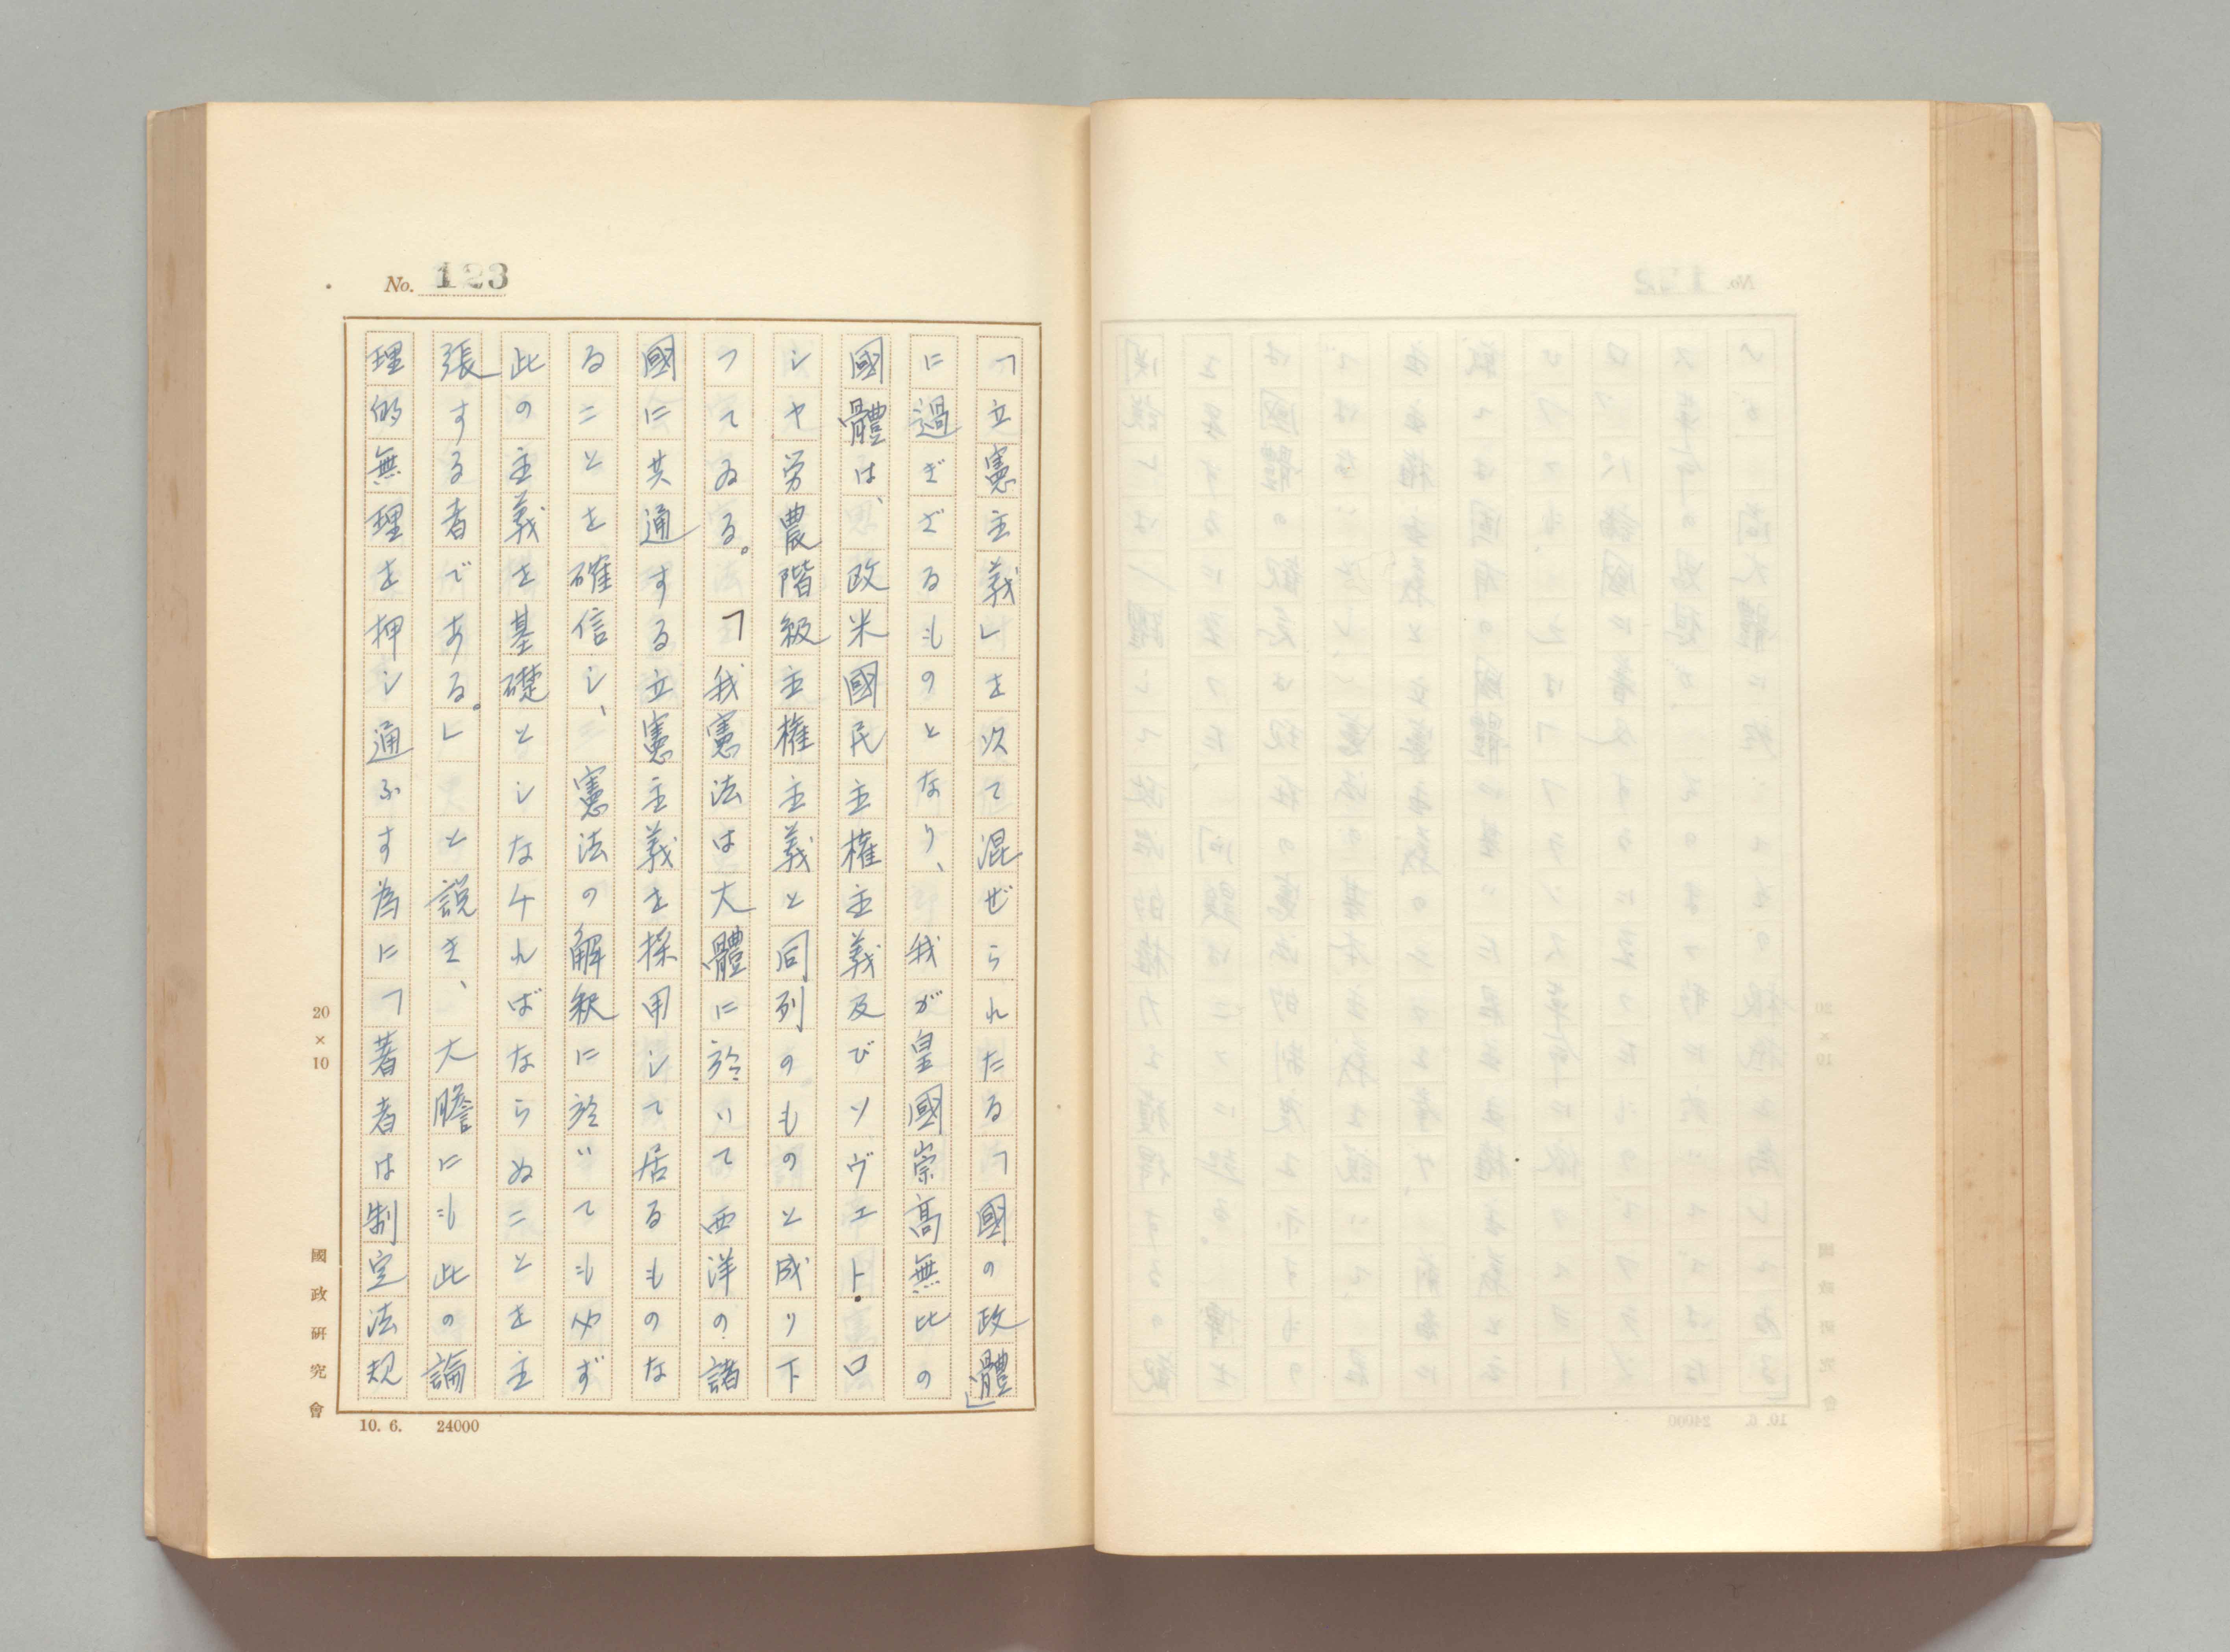 No. 123
「立憲主義」を以て混ぜられたる「國の政體」
に過ぎざるものとなり、我が皇國崇高無比の
國體は、政米國民主権主義及びソヴエト・ロ
シヤ労農階級主権主義と同列のものと成り下
つてゐる。「我憲法は大體に於いて西洋の諸
國に共通する立憲主義を採用して居るものな
ることを確信し、憲法の解釈に於いても必ず
此の主義を基礎としなければならぬことを主
張する者である。」と説き、大膽にも此の論
理的無理を押し通ふす為に「著者は制定法規
20×10
國政研究會
10. 6. 24000